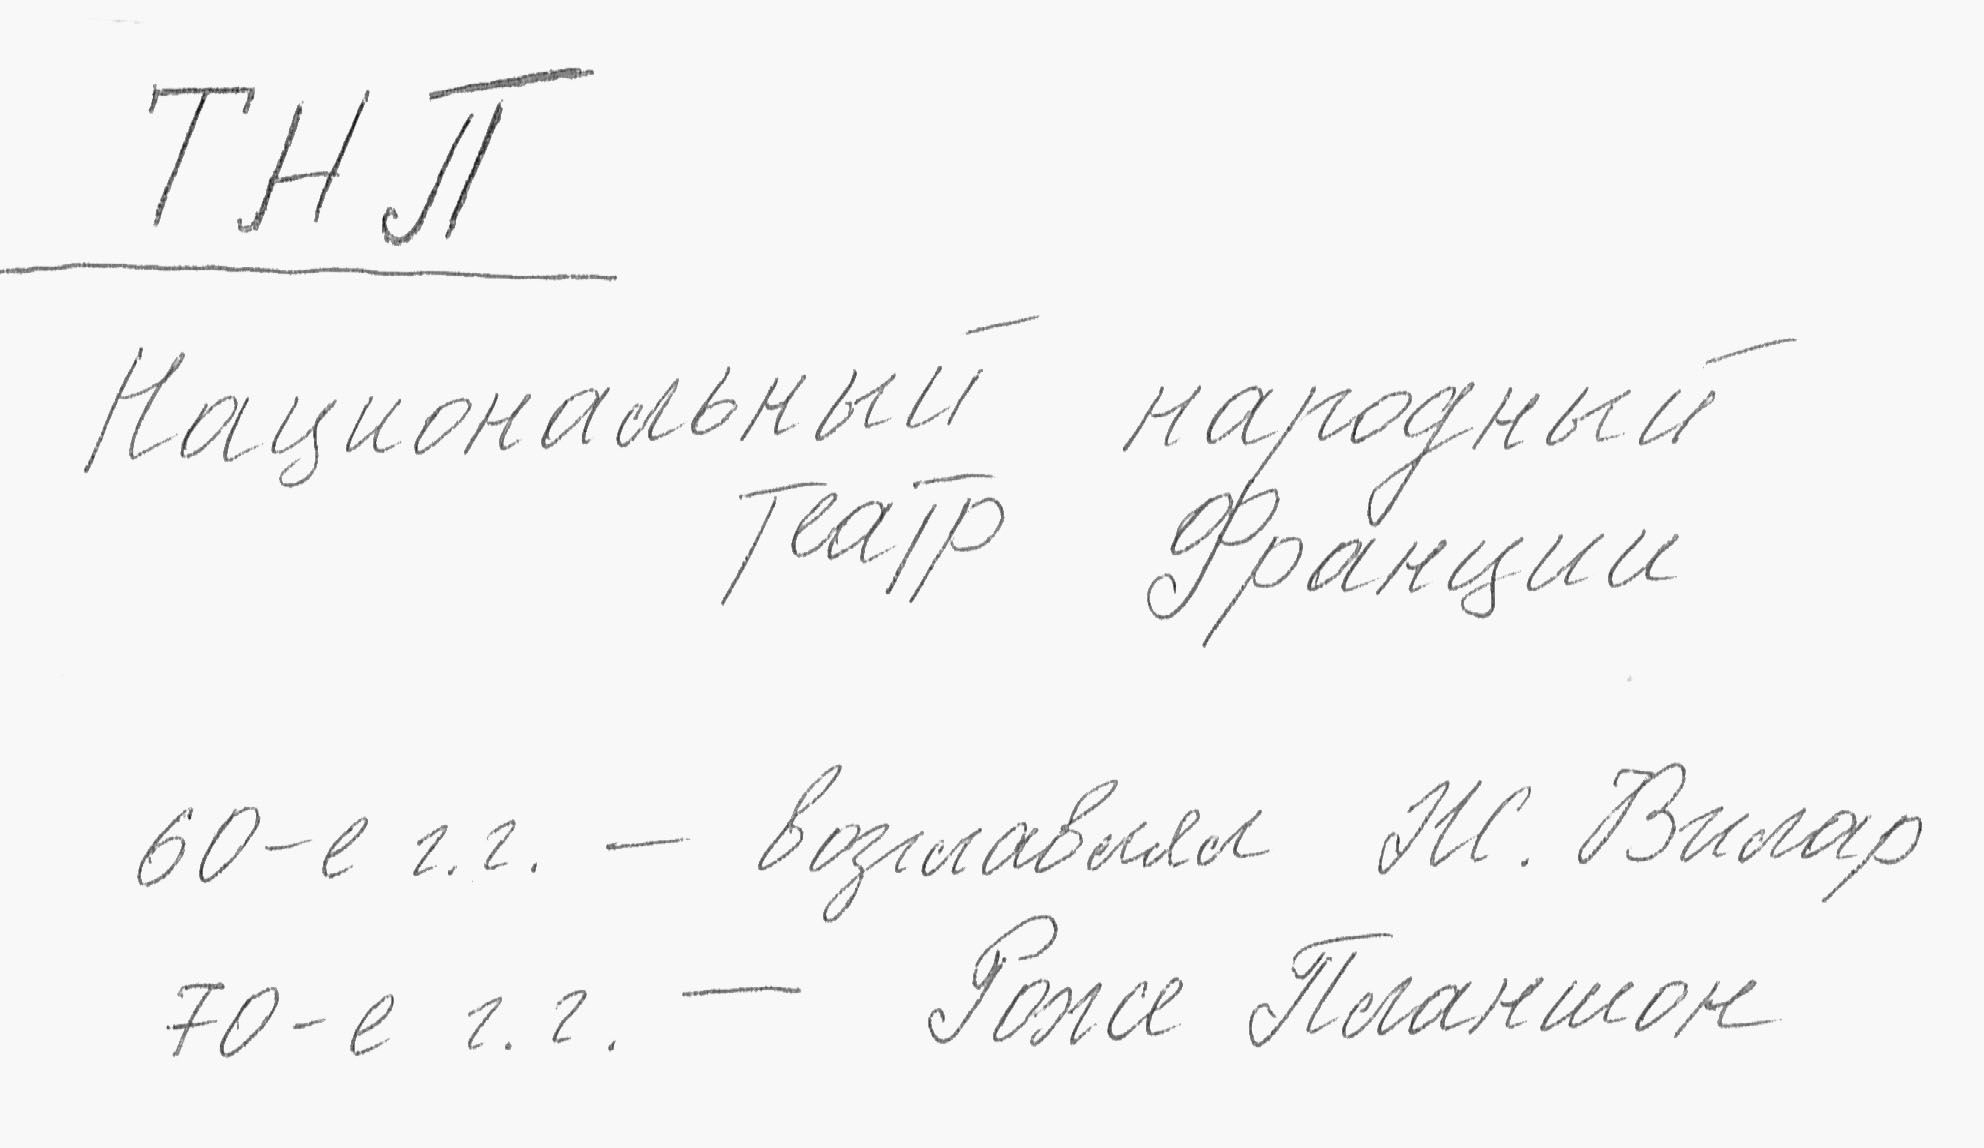 ТНП
Национальный народный
театр Франции
60-е г.г. — возглавлял Ж. Вилар
70-е г.г. — Роже Планшон